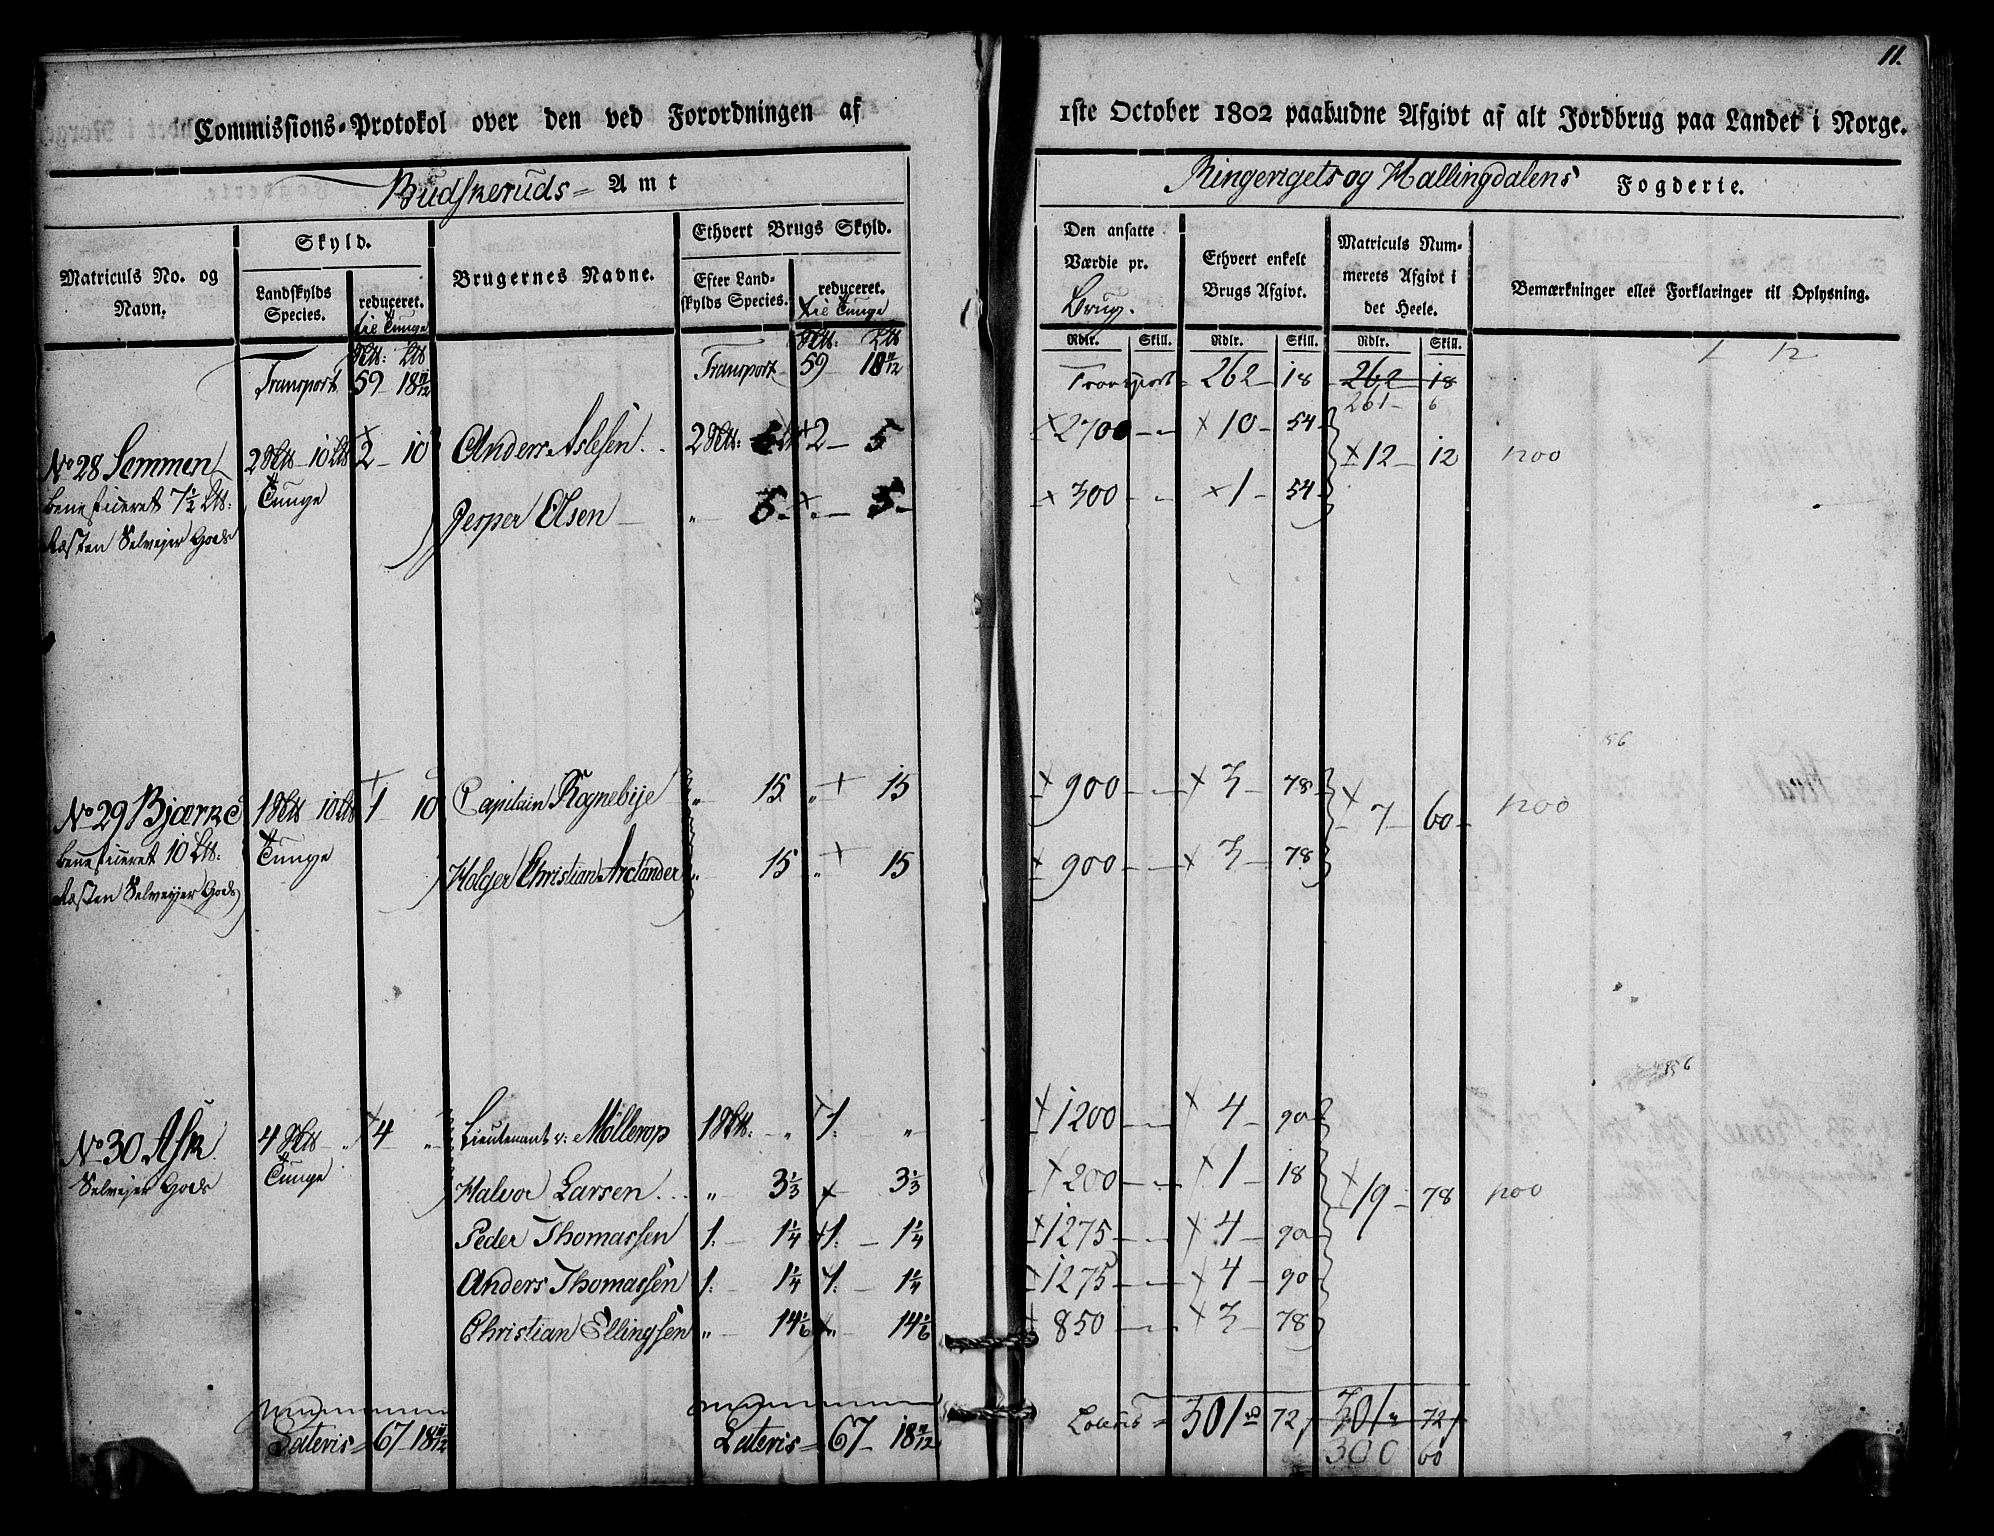 11.
Commissions-Protokol over den ved Forordningen af 1ste October 1802 paabudne Afgivt af alt Jordbrug paa Landet i Norge.
Budskeruds Amt
Ringerigets og Hallingdalens Fogderie.
Matriculs No. og Navn.
Skyld.
Landskylds Species.
reduceret. til Tunge
Brugernes Navne.
Ethvert Brugs Skyld.
Efter Landskylds Species.
reduceret. til Tunge
Den ansatte Værdie pr. Brug.
Ethvert enkelt Brugs Afgivt.
Matriculs Nummerets Afgivt i det Heele.
Bemærkninger eller Forklaringer til Oplysning.
Rdlr. Skill. Rdlr. Skill. Rdlr. Skill.
Transport 59 18 11/12 Transport 59 18 11/12 Transport 262 18 262 18
261 6
No 28 Semmen 2 10 2 10 Anders Aslesen 2 5 2 5 2700 10 54 12 12 1200
Beneficeret 7 1/2 Tunge Jesper Olsen " 5 " 5 300 1 54
Resten Selveyer Gods
No 29 Bjærke 1 10 1 10 Capitain Kognebije " 15 " 15 900 3 78 7 60 1200
Beneficeret 10 Tunge Holger Christian Arctander " 15 " 15 900 3 78
Resten Selveyer Gods
No 30 Ask 4 " 4 " Lieutenant v: Møllerop 1 " 1 " 1200 4 90
Selveyer Gods Tunge Halvor Larsen " 3 1/3 3 1/3 200 1 18 19 78 1200
Peder Thomassen 1 1 1/4 1 1 1/4 1275 4 90
Anders Thomassen 1 1 1/4 1 1 1/4 1275 4 90
Christian Ellingsen " 14 1/6 " 14 1/6 850 3 78
Lateris 67 18 11/12 Lateris 67 18 11/12 Lateris 301 72 301 72
300 60